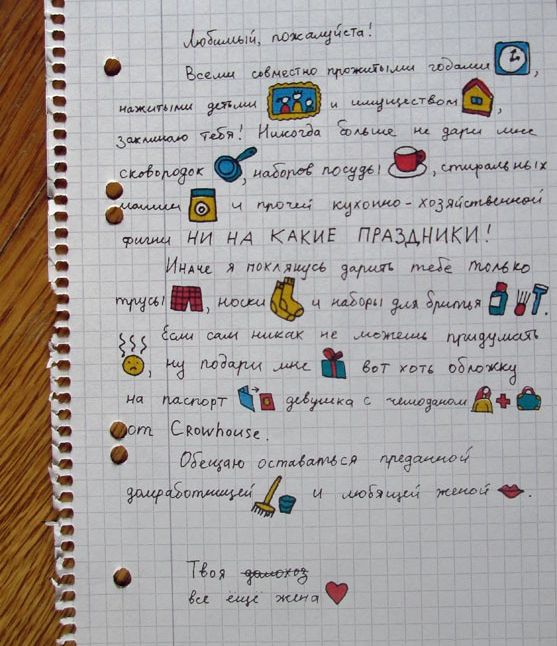 Любимый, пожалуйста!
Всеми совместно прожитыми годами,
нажитыми детьми и имуществом,
заклинаю тебя! Никогда больше не дари мне
сковородок, наборов посуды, стиральных
машин и прочей кухонно-хозяйственной
фигни НИ НА КАКИЕ ПРАЗДНИКИ!
Иначе я поклянусь дарить тебе только
трусы, носки и наборы для бритья.
Если сам никак не можешь придумать
, ну подари мне вот хоть обложку
на паспорт девушка с чемоданом
от CROWHOUSE.
Обещаю оставаться преданной
домработницей и любящей женой.
Твоя домохоз
все ещё жена